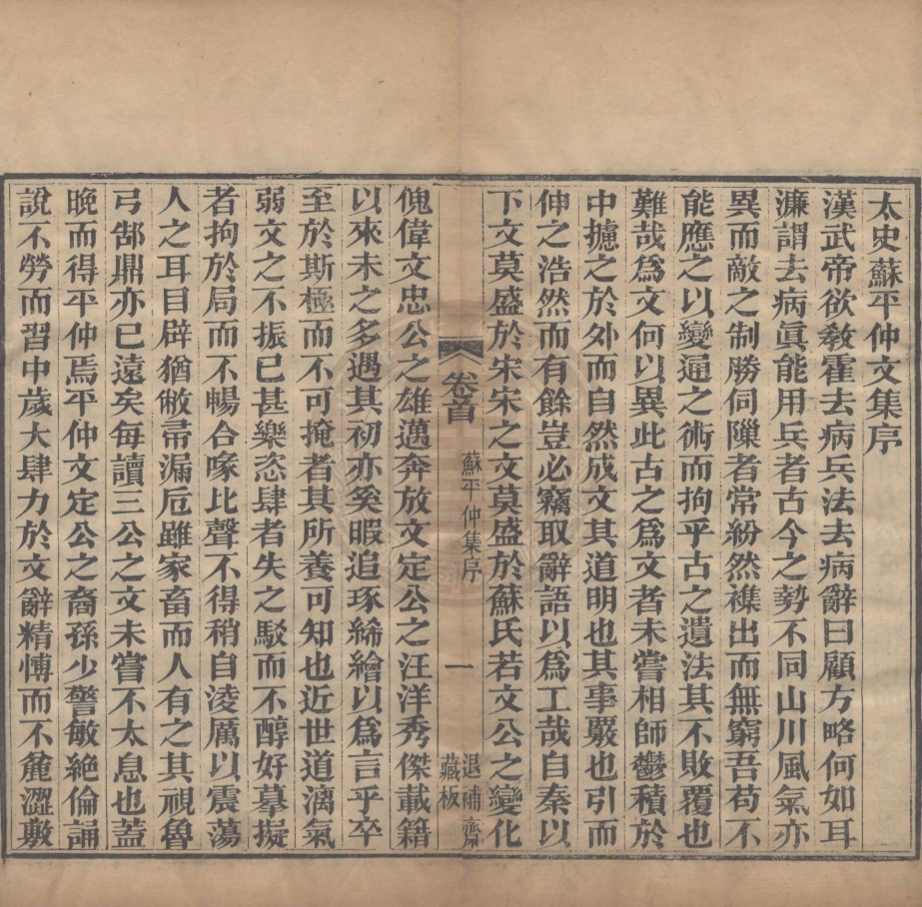 太史蘇平仲文集序
漢武帝欲敎霍去病兵法去病辭曰顧方略何如耳
濂謂去病眞能用兵者古今之勢不同山川風氣亦
異而敵之制勝伺隟者常紛然襍出而無窮吾苟不
能應之以變通之術而拘乎古之遺法其不敗覆也
難哉爲文何以異此古之爲文者未嘗相師鬱積於
中攄之於外而自然成文其道明也其事嚴也引而
伸之浩然而有餘豈必竊取辭語以爲工哉自秦以
下文莫盛於宋宋之文莫盛於蘇氏若文公之變化
卷首
蘇平仲集序
一
退補齋
藏板
傀偉文忠公之雄邁奔放文定公之汪洋秀傑載籍
以來未之多遇其初亦奚暇追琢絺繪以爲言乎卒
至於斯極而不可掩者其所養可知也近世道漓氣
弱文之不振已甚樂恣肆者失之駁而不醇好摹擬
者拘於局而不暢合喙比聲不得稍自淩厲以震蕩
人之耳目辟猶敝帚漏卮雖家畜而人有之其視魯
弓郜鼎亦已遠矣每讀三公之文未嘗不太息也蓋
晚而得平仲焉平仲文定公之裔孫少警敏絶倫誦
說不勞而習中歲大肆力於文辭精愽而不麄澀敷